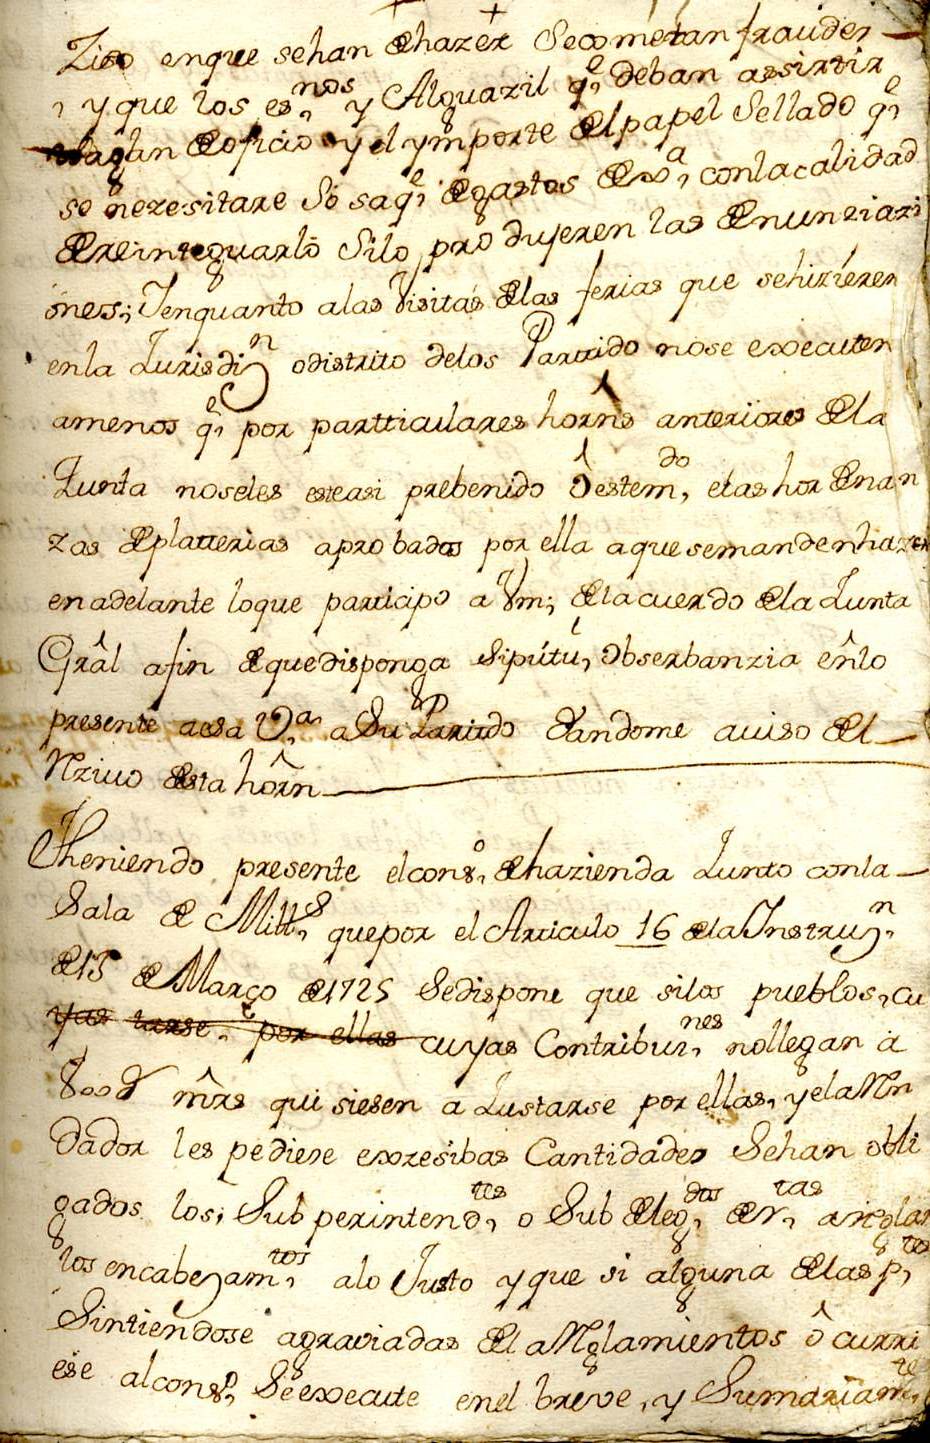 Zizo enque sehan de hazer Secometan fraudes
, y que los es.nos y Alguazil q.e deban assistir
hagan de oficio y el ymporte del papel Sellado q.e
se nezesitare Se saq.e de gastos de x.a, conlacalidad
de reinteguarlo Silo produjeren las denunziazi
ones; Y enquanto alas Visitas delas ferias que sehizieren
enla Jurisdiz.n o distrito delos Partido nose executen
amenos q.e por partticulares hôrns anteriores dela
Junta noseles esteasi prebenido ô estem.do, elas hordenan
zas de platterias aprobadas por ella aquesemandenhazer
enadelante loque participo a Vm; delacuerdo dela Junta
Grâl afin de quedisponga Sipúttú, Obserbanzia ênlo
presente aesa V.a a Su Partido dandome auiso del
Rziuo desta hôrn
Theniendo presente elcons.o de hazienda Junto conla
Sala de Mill.s, quepor el Articulo 16 dela Instruz.n
de 15 de Março de 1725 Sedispone que silos pueblos, cu
yas tarse, por ellas cuyas Contribuz.nes nollegan a
800d mrîs quisiesen aJustarse por ellas, y elaRn
dador les pediere exzesibas Cantidades Sehan obli
gados los; Subperintend.tes, o Subdeleg.dos de R.tas, arreglar
los encabezam.tos, alo Justo y que si alguna delas p.tes
Sintiendose agraviadas del aRglamientos ôcurri
ese alcons.o, Se execute enel breve, y Sumariam.te,